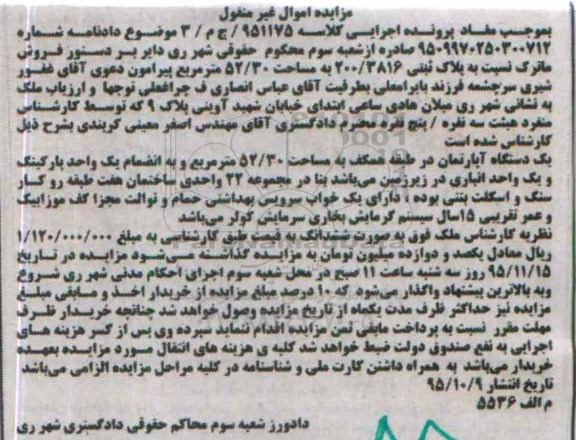 مزایده اموال غیر منقول
بموجب مفاد پرونده اجرایی کلاسه ۹۵۱۱۷۵ / ج م / ۳ موضوع دادنامه شماره
۹۵۰۹۹۷۰۲۵۰۳۰۰۷۱۲ صادره ازشعبه سوم محکوم حقوقی شهر ری دایر بر دستور فروش
ماترک نسبت به پلاک ثبتی ۲۰۰/۳۸۱۶ به مساحت ۵۲/۳۰ مترمربع پیرامون دعوی آقای غفور
شیری سرچشمه فرزند بابرامعلی بطرفیت آقای عباس انصاری ف چراغعلی توجها و ارزیاب ملک
به نشانی شهر ری میلان هادی ساعی ابتدای خیابان شهید آوینی پلاک ۹ که توسط کارشناس
منفرد هیئت سه نفره / پنج نفره / دادگستری آقای مهندس اصغر معینی کربندی بشرح ذیل
کارشناس شده است
یک دستگاه آپارتمان در طبقه همکف به مساحت ۵۲/۳۰ مترمربع و به انضمام یک واحد پارکینگ
و یک واحد انباری در زیرزمین می‌باشد بنا در مجموعه ۲۲ واحدی ساختمان هفت طبقه رو کار
سنگ و اسکلت بتنی بوده ، دارای یک خواب سرویس بهداشتی حمام و توالت مجزا کف موزاییک
و عمر تقریبی ۱۵سال سیستم گرمایش بخاری سرمایش کولر می‌باشد
نظریه کارشناس ملک فوق به صورت ششدانگ به قیمت طبق کارشناسی به مبلغ ۱/۱۲۰/۰۰۰/۰۰۰
ریال معادل یکصد و دوازده میلیون تومان به مزایده گذاشته می‌شود مزایده در تاریخ
۹۵/۱۱/۱۵ روز سه شنبه ساعت ۱۱ صبح در محل شعبه سوم اجرای احکام مدنی شهر ری شروع
وبه بالاترین پیشنهاد واگذار می‌شود که ۱۰ درصد مبلغ مزایده از خریدار اخذ و مابقی مبلغ
مزایده نیز حداکثر ظرف مدت یکماه از تاریخ مزایده وصول خواهد شد چنانچه خریدار ظرف
مهلت مقرر نسبت به پرداخت مابقی ثمن مزایده اقدام ننماید سپرده وی پس از کسر هزینه های
اجرایی به نفع صندوق دولت ضبط خواهد شد کلیه ی هزینه های انتقال مورد مزایده بعهده
خریدار می‌باشد به همراه داشتن کارت ملی و شناسنامه در کلیه مراحل مزایده الزامی می‌باشد
تاریخ انتشار ۹۵/۱۰/۹
م الف ۵۵۳۶
دادورز شعبه سوم محاکم حقوقی دادگستری شهر ری